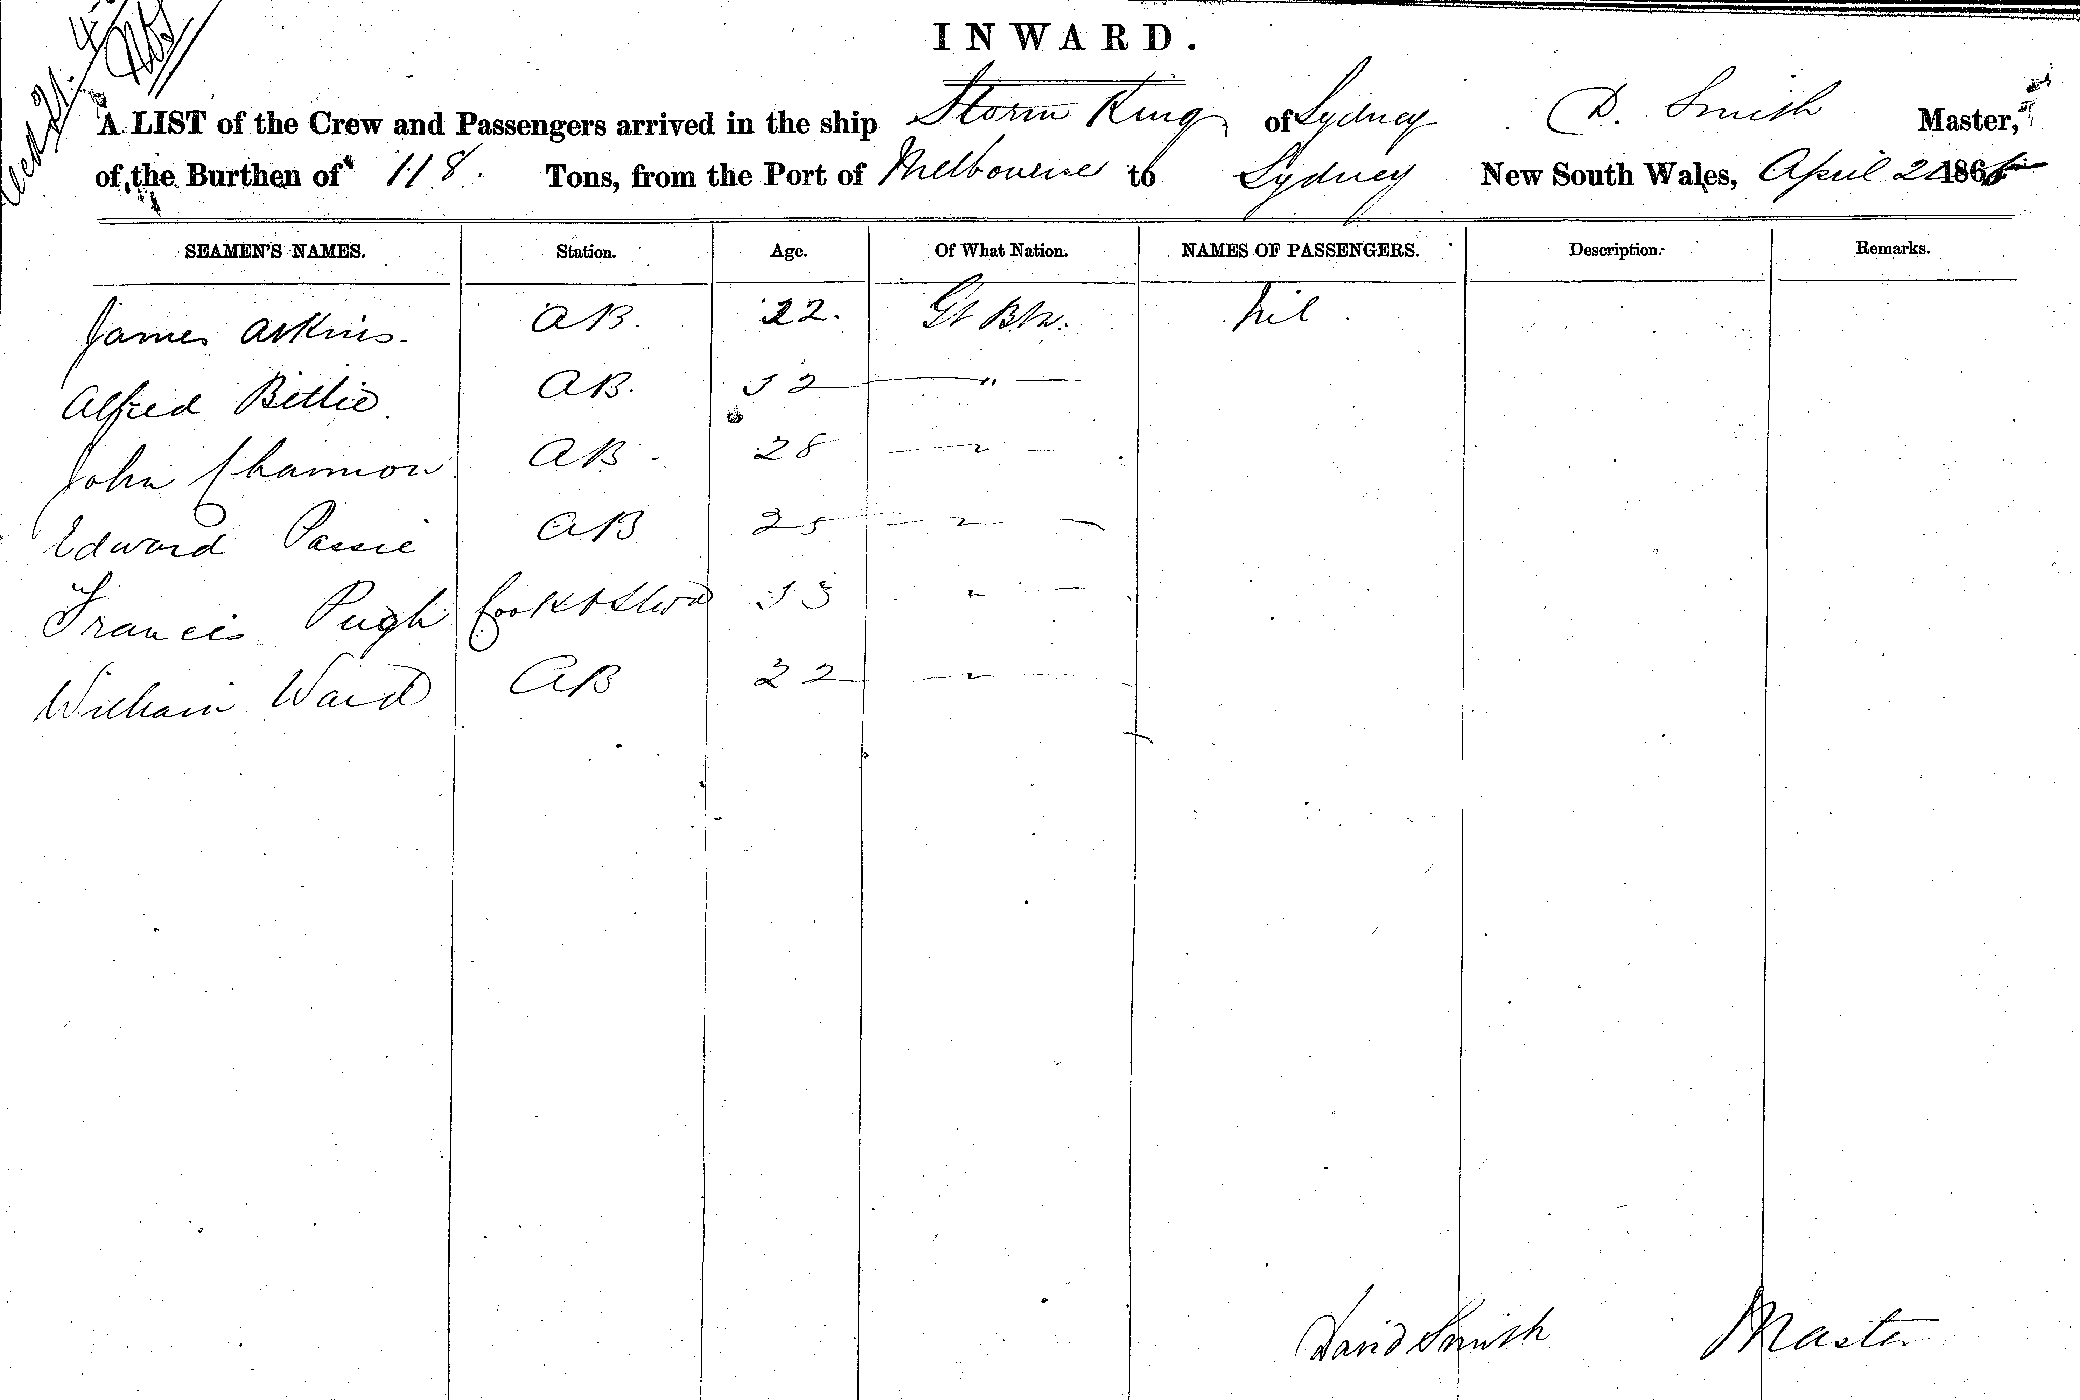 INWARD.
A LIST of the Crew and Passengers arrived in the ship Storm King of Sydney D. Smith Master,
of the Burthen of 118. Tons, from the Port of Melbourne to Sydney New South Wales, April 186
SEAMEN'S NAMES. Station. Age. Of What Nation. NAMES OF PASSENGERS. Description. Remarks.
James Atkins. AB. 22. Gt Btn. Nil.
Alfred AB. 32 "
John Channon AB 28 "
Edward AB 25 "
Francis Pugh Cook & Stwd 33 "
William Ward AB 22 "
David Smith Master